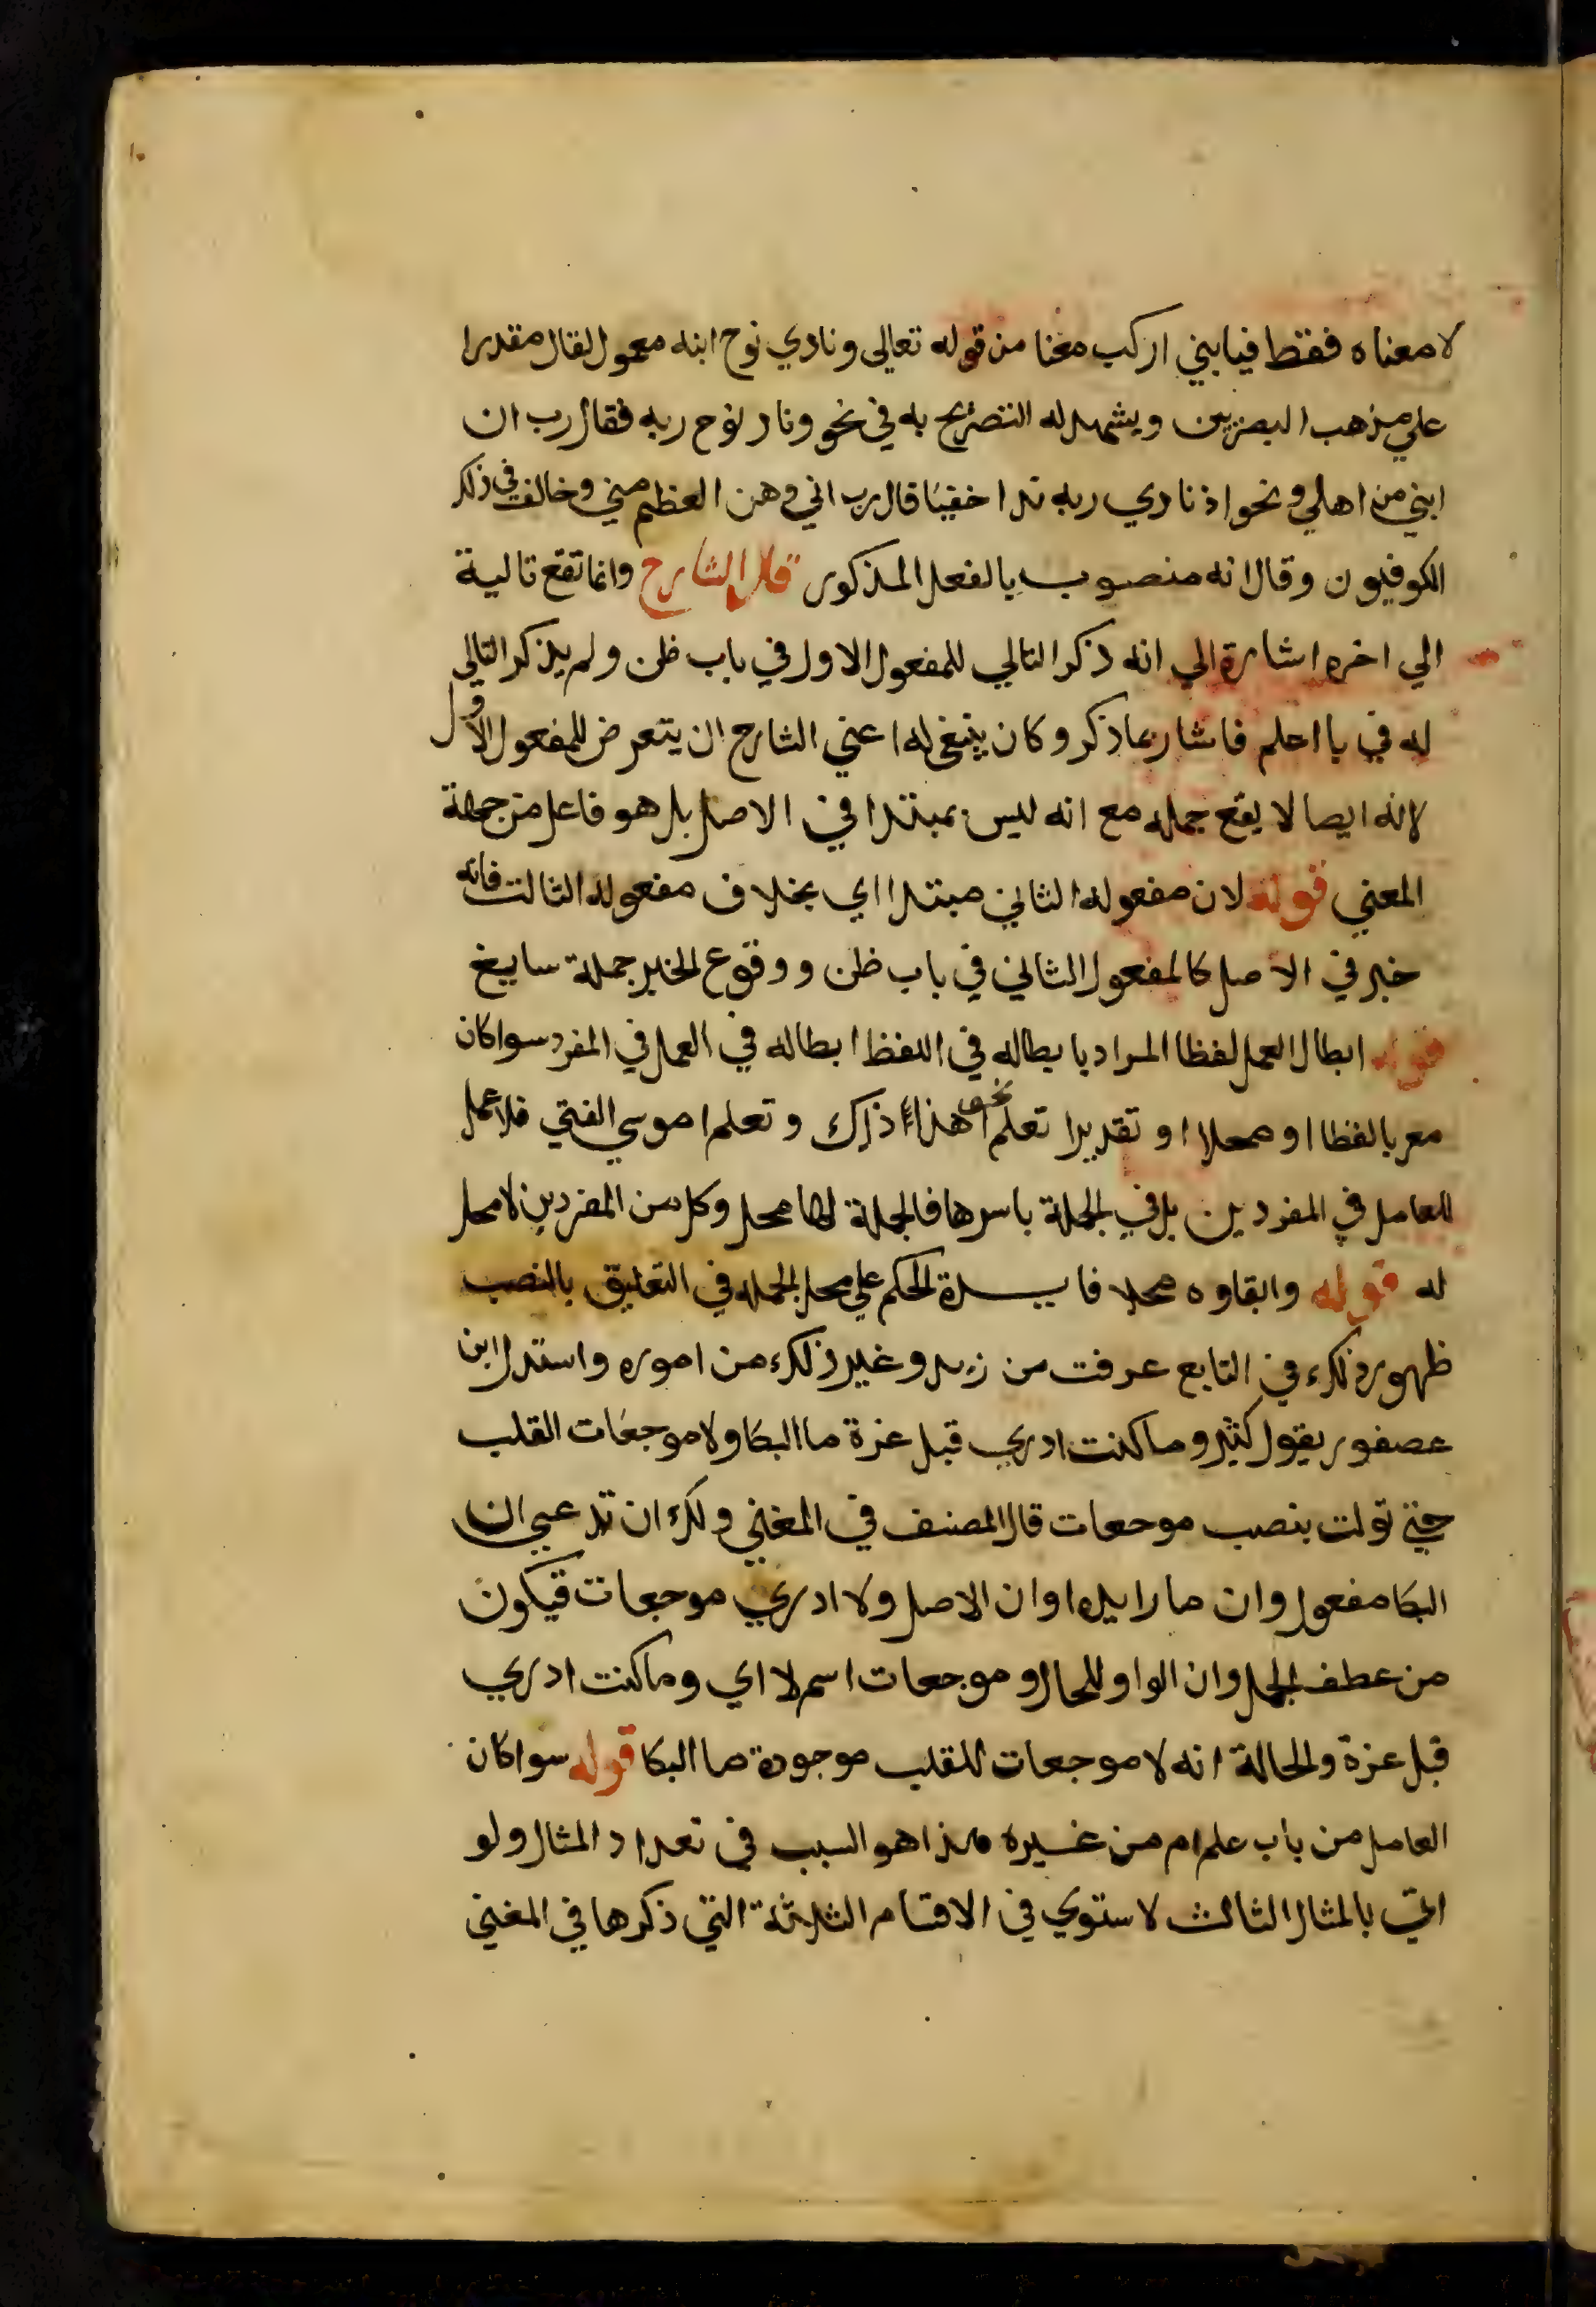 لا معناه فقط فيا بني اركب معنا من قوله تعالى ونادي نوح ابنه معمول لقال مقدرا
علي مذهب البصريين ويشهد له التصريح به في نحو وناد نوح ربه فقال رب ان
ابني من اهلي ونحو اذ نادي ربه ندا خفيا قال رب اني وهن العظم مني وخالف في ذلك
الكوفيون وقال انه منصوب بالفعل المذكور قال الشارح وانما تقع تالية
الي اخره اشارة الي انه ذكر التالي للمفعول الاول في باب ظن ولم يذكر التالي
له في با اعلم فاشار بما ذكر وكان ينبغي له اعني الشارح ان يتعرض للمفعول الاول
لانه ايضا لا يقع جمله مع انه ليس بمبتدا في الاصل بل هو فاعل من جهة
المعني قوله لان مفعوله الثاني مبتدا اي بخلاف مفعوله الثالث فانه
خبر في الاصل كالمفعول الثاني في باب ظن ووقوع الخبر جملة سايغ
قوله ابطال العمل لفظا المراد بابطاله في اللفظ ابطاله في العمل في المفرد سوا كان
معربا لفظا او محلا او تقديرا نحو تعلم اهذا ذاك وتعلم اموسي الفتي فلا عمل
للعامل في المفردين بل في الجملة باسرها فالجملة لها محل وكل من المفردين لا محل
له قوله وابقاوه محلا فايدة الحكم علي محل الجمله في التعليق بالنصب
ظهور ذلك في التابع عرفت من زيد وغير ذلك من اموره واستدل ابن
عصفور بقول كثير وما كنت ادري قبل عزة ما البكا ولا موجعات القلب
حتي تولت بنصب موجعات قال المصنف في المغني ولك ان تدعي ان
البكا مفعول وان ما زايدة او ان الاصل ولا ادري موجعات فيكون
من عطف الجمل وان الواو للحال و موجعات اسم لا اي وما كنت ادري
قبل عزة والحالة انه لا موجعات للقلب موجودة ما البكا قوله سوا كان
العامل من باب علم ام من غيره هذا هو السبب في تعداد المثال ولو
اتي بالمثال الثالث لاستوي في الاقسام الثلاثة التي ذكرها في المغني